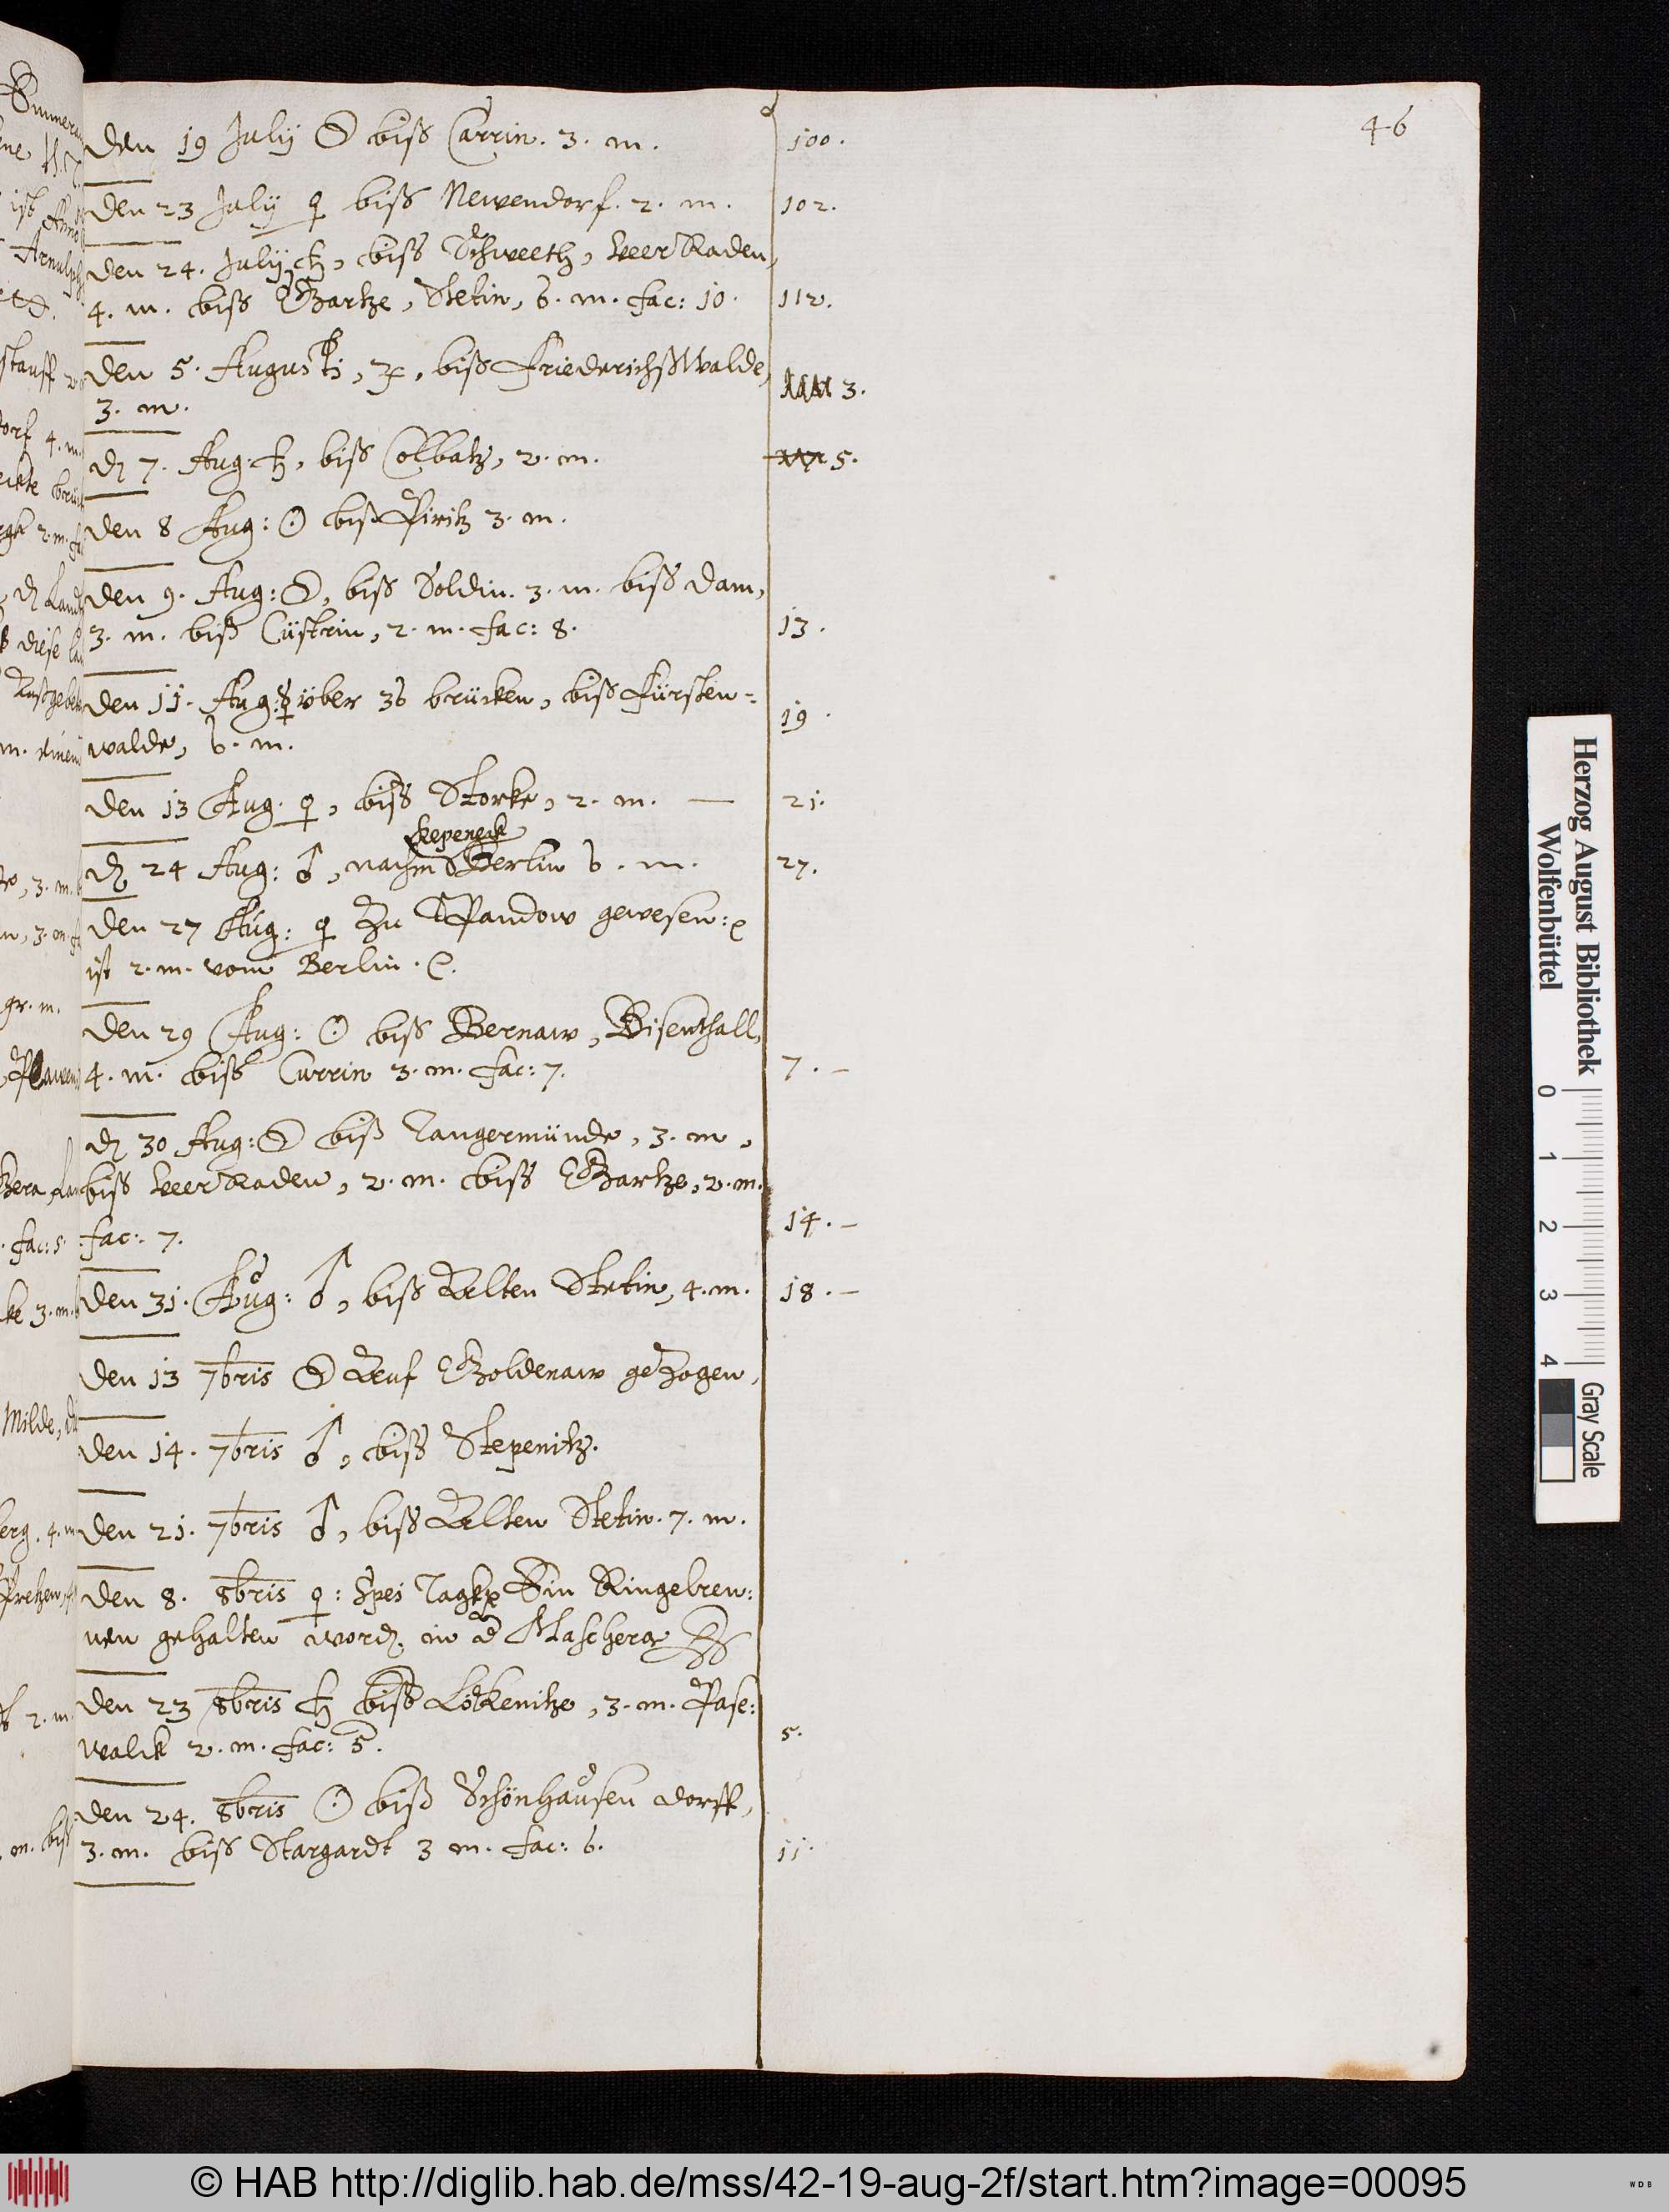 46
den 19 Julij ☽ biß Carrin. 3. m. 100.
den 23 Julij ♀ biß Newendorf. 2. m. 102.
den 24. Julij ♄, biß Schweetz, VeerRaden,
4. m. biß Gartze, Stetin, 6. m. fac: 10. 112.
den 5. Augusti, ♃, biß FriederichsWalde,
3. m. 3.
dn 7. Aug. ♄, biß Colbatz, 2. m. 5.
den 8 Aug: ☉ biß Piritz 3. m.
den 9. Aug: ☽, biß Soldin. 3. m. biß dam,
3. m. biß Cüstrin, 2. m. fac: 8. 13.
den 11. Aug: ☿ über 36 brücken, biß Fürsten=
walde, 6. m. 19.
den 13 Aug. ♀, biß Storke, 2. m. — 21.
Kepeneck
dn 24 Aug: ♂, nachm Berlin 6. m. 27.
den 27 Aug: ♀ Zu Spandow gewesen:
ist 2. m. vom Berlin.
den 29 Aug: ☉ biß Bernaw, Bisenthall,
4. m. biß Currin 3. m. fac: 7. 7. –
dn 30 Aug: ☽ biß Tangermünde, 3. m,
biß VeerRaden, 2. m. biß Gartze, 2. m.
fac: 7. 14. –
den 31. Aug: ♂, biß Alten Stetin, 4. m. 18. –
den 13 7bris ☽ Auf Goldenaw geZogen,
den 14. 7bris ♂, biß Stepenitz.
den 21. 7bris ♂, biß Alten Stetin. 7. m.
den 8. 8bris ♀: Ein Ringelren=
nen gehalten word. in d Maschera
den 23 8bris ♄ biß Löckenitze, 3. m. Pase:
walck 2. m. fac: 5. 5.
den 24. 8bris ☉ biß Schönhausen dorff,
3. m. biß Stargardt 3 m. fac: 6. 11.
Herzog August Bibliothek
Wolfenbüttel
0 1 2 3 4
Gray Scale
© HAB http://diglib.hab.de/mss/42-19-aug-2f/start.htm?image=00095
WDB